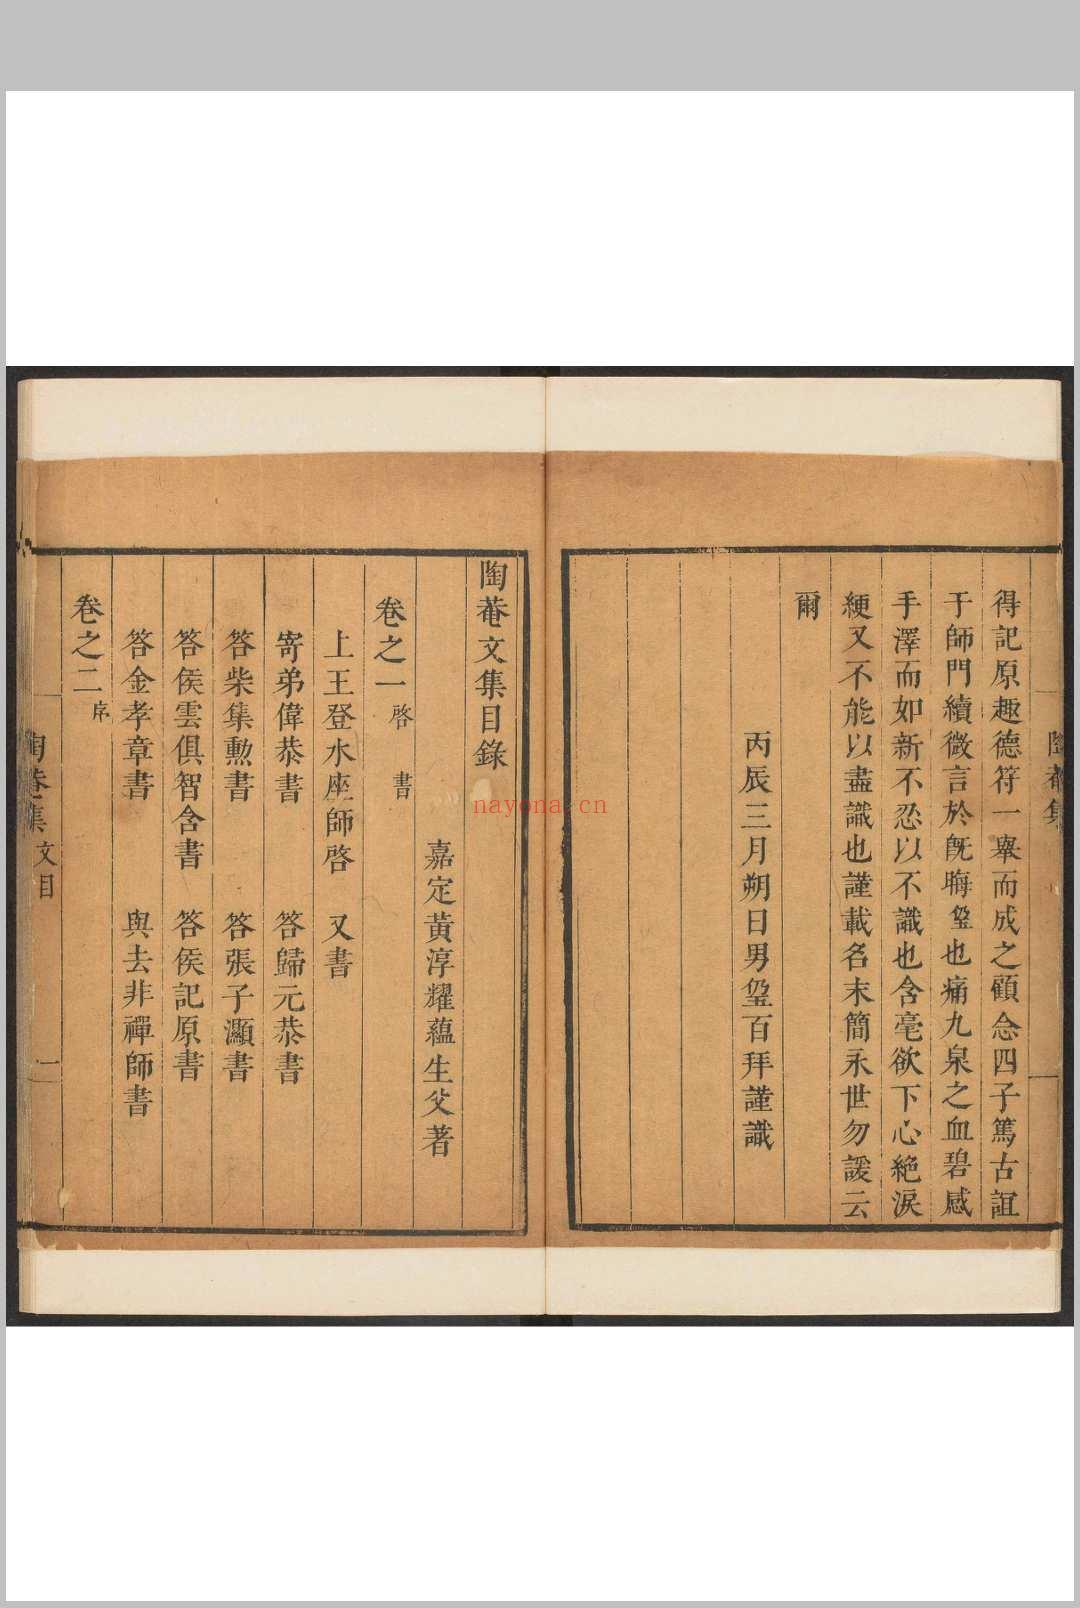 得記原趣德符一舉而成之顧念四子篤古誼
于師門續微言於旣晦䥐也痛九泉之血碧感
手澤而如新不忍以不識也含毫欲下心絶淚
綆又不能以盡識也謹載名末簡永世勿諼云
爾
丙辰三月朔日男䥐百拜謹識
陶菴文集目錄
嘉定黃淳耀蘊生父著
卷之一 啓 書
上王登水座師啓 又書
寄弟偉恭書 答歸元恭書
答柴集勳書 答張子灝書
答侯雲俱智含書 答侯記原書
答金孝章書 與去非禪師書
卷之二 序
陶菴集 文目 一
nayona.cn